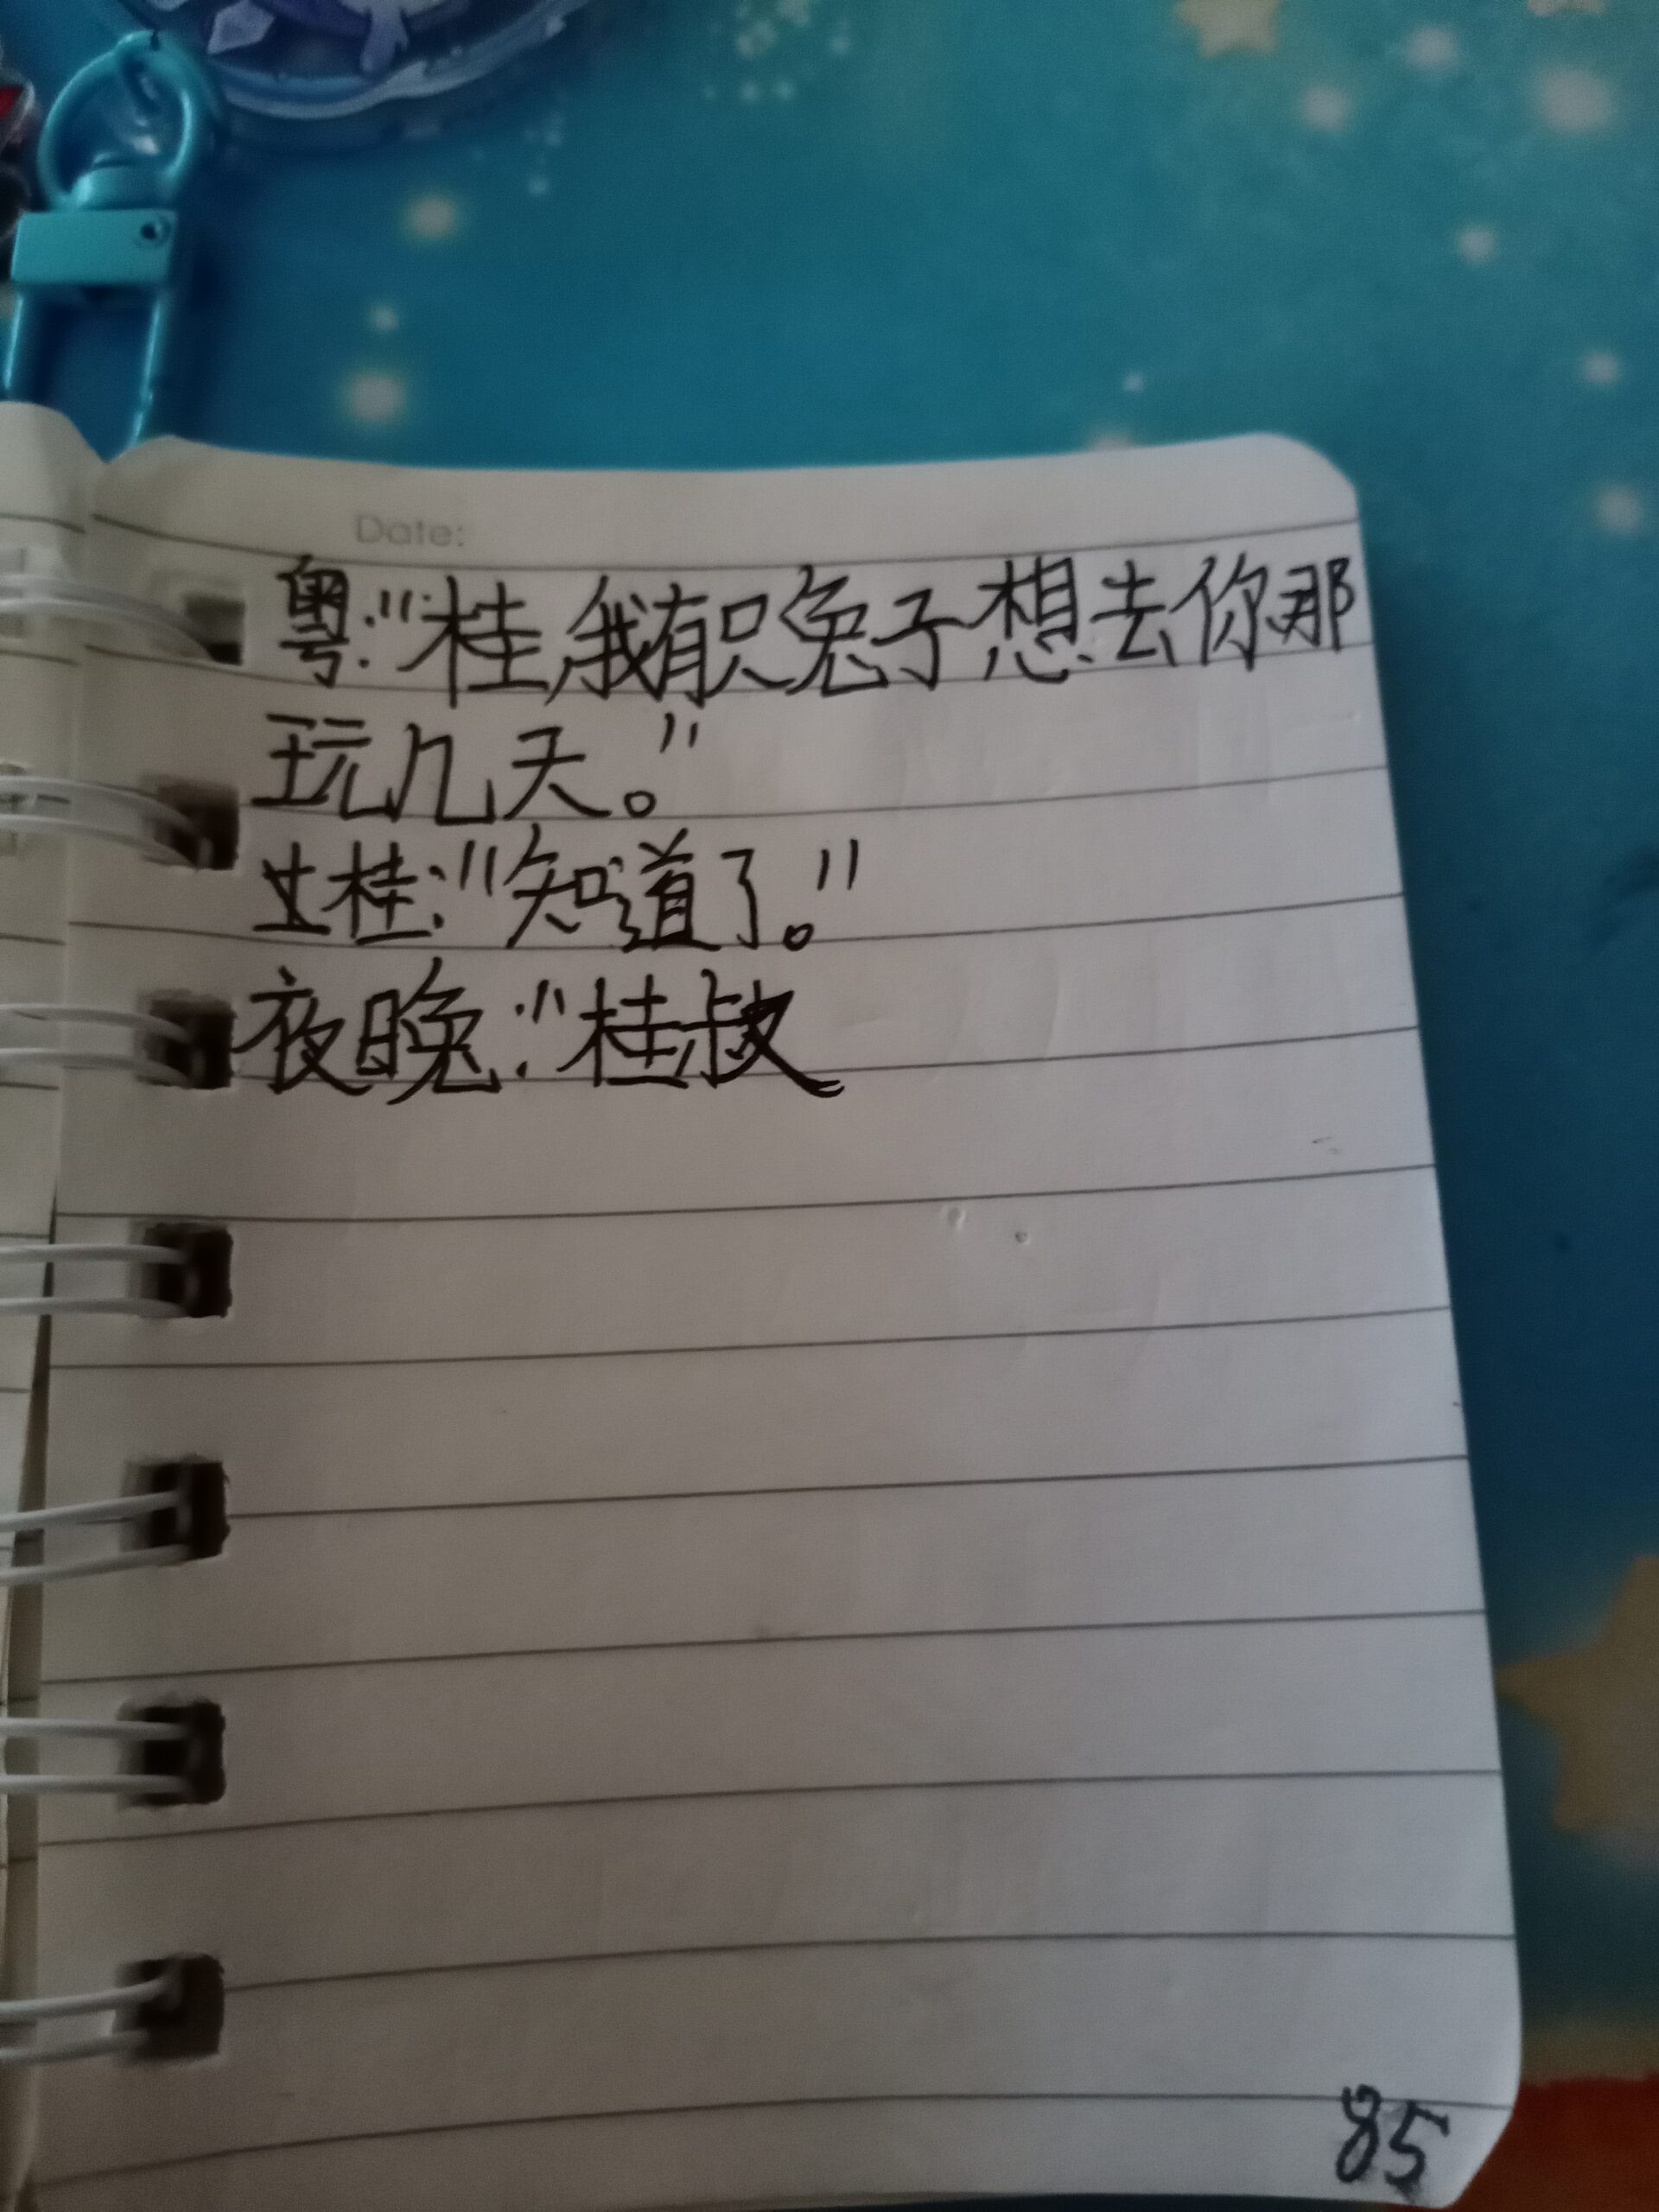 Date:
粤:"桂,我有只兔子想去你那
玩几天。"
桂:"知道了。"
夜晚:"桂叔
85